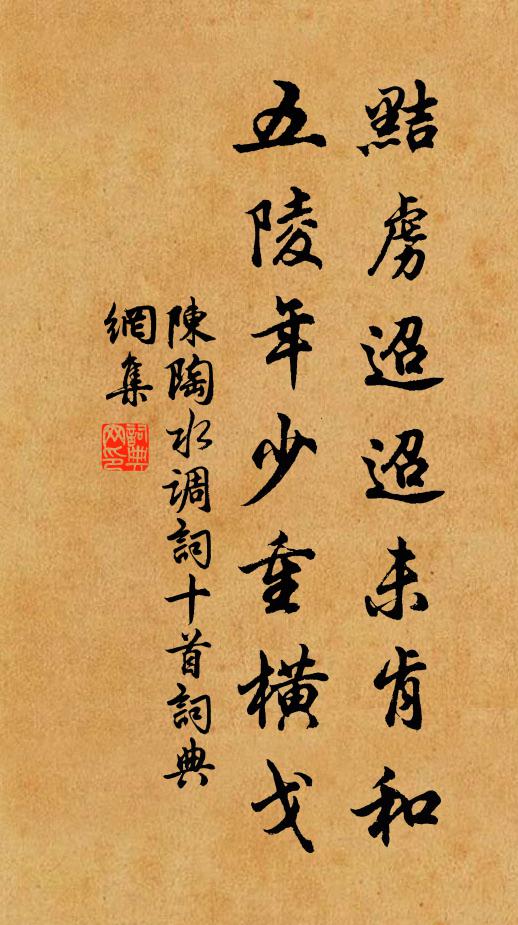 黠虜迢迢未肯和
五陵年少重橫戈
陳陶水调詞十首詞典
網集
詞典網印